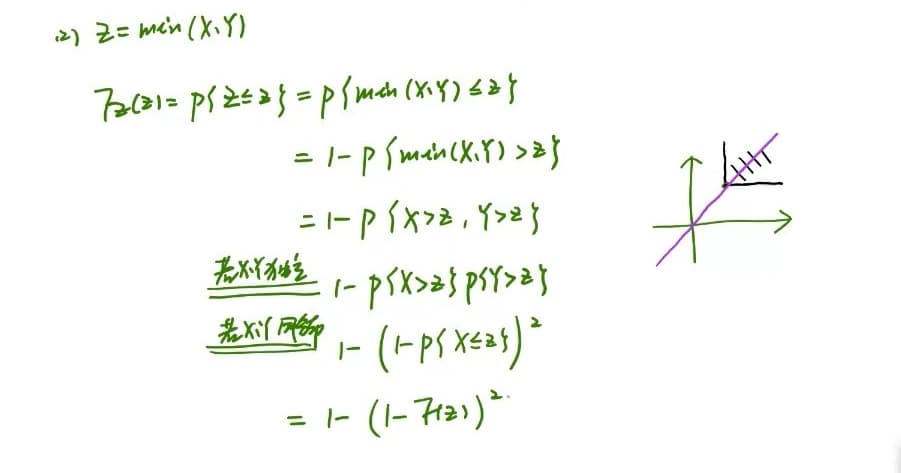 (2) Z = min(X,Y)
F_Z(z) = P{Z≤z} = P{min(X,Y)≤z}
= 1-P{min(X,Y)>z}
= 1-P{X>z, Y>z}
若X,Y独立 1-P{X>z}P{Y>z}
若X,Y同分布 1-(1-P{X≤z})²
= 1-(1-F(z))²